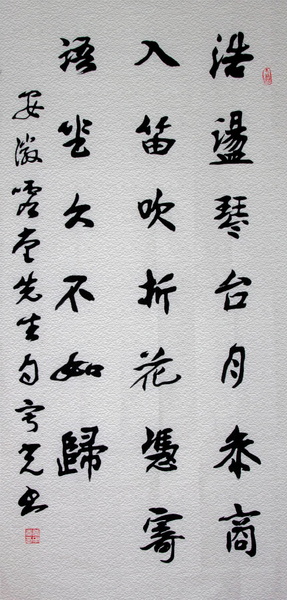 浩盪琴台月参商
入笛吹折花憑寄
語坐久不如歸
安徽堂先生句